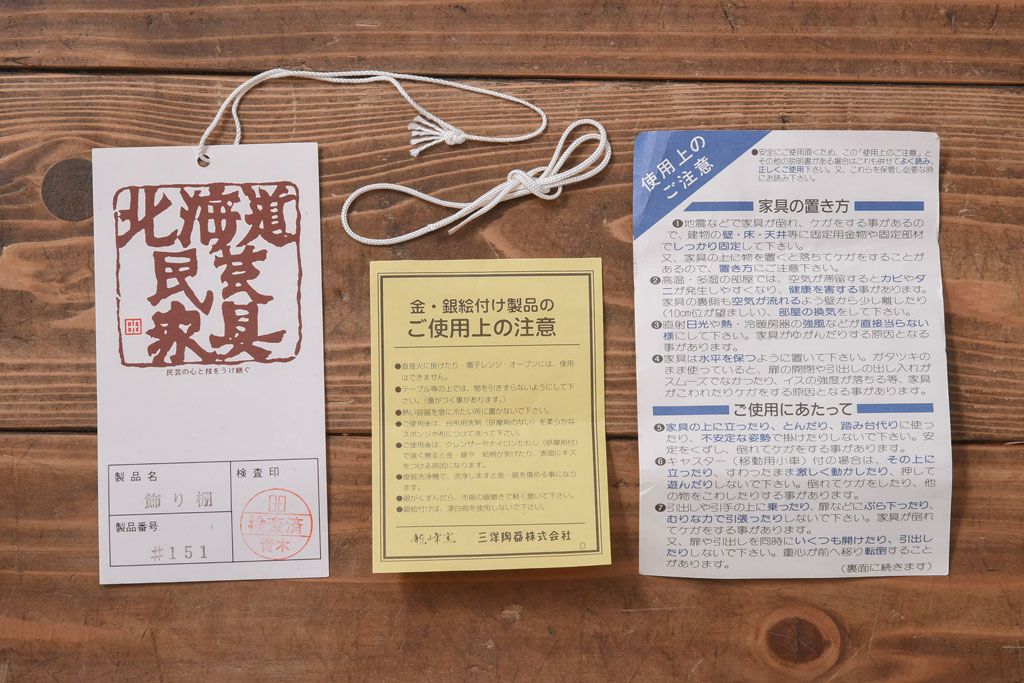 北海道
民芸
家具
民芸の心と技をうけ継ぐ
製品名
飾り棚
製品番号
#151
検査印
検査済
青木
金・銀絵付け製品の
ご使用上の注意
●直接火に掛けたり・電子レンジ・オーブンには、使用
はできません。
●テーブル等の上では、物を引きずらないようにして下
さい。(傷がつく事があります。)
●熱い容器を急に冷たい所に置かないで下さい。
●ご使用後は、台所用洗剤(研摩剤のない)を柔らかな
スポンジや布につけて洗って下さい。
●ご使用後は、クレンザーやナイロンたわし(研摩剤付)
で強く擦ると金・銀や 絵柄が剥げたり、表面にキズ
をつける原因になります。
●食器洗浄機で、洗浄しますと金・銀を傷める事になり
ます。
●銀がくすんだら、市販の銀磨きで軽く磨いて下さい。
●銀絵付けは、漂白剤を使用しないで下さい。
龍峰窯 三洋陶器株式会社
D
使用上の
ご注意
●安全にご使用頂くため、この「使用上のご注意」と
その他の説明書がある場合はこれも併せてよく読み、
正しくご使用下さい。又、これらを保管し必要な時
にお読み下さい。
家具の置き方
❶地震などで家具が倒れ、ケガをする事があるの
で、建物の壁・床・天井等に固定用金物や固定部材
でしっかり固定して下さい。
又、家具の上に物を置くと落ちてケガをすることが
あるので、置き方にご注意下さい。
❷高温・多湿の部屋では、空気が滞留するとカビやダ
ニが発生しやすくなり、健康を害する事があります。
家具の裏側も空気が流れるよう壁から少し離したり
(10cm位が望ましい)、部屋の換気をして下さい。
❸直射日光や熱・冷暖房器の強風などが直接当らない
様にして下さい。家具がゆがんだりする原因となる
事があります。
❹家具は水平を保つように置いて下さい。ガタツキの
まま使っていると、扉の開閉や引出しの出し入れが
スムーズでなかったり、イスの強度が落ちる等、家具
がこわれたりケガをする原因となる事があります。
ご使用にあたって
❺家具の上に立ったり、とんだり、踏み台代りに使っ
たり、不安定な姿勢で掛けたりしないで下さい。安
定をくずし、倒れてケガをする事があります。
❻キャスター(移動用小車)付の場合は、その上に
立ったり、すわったまま激しく動かしたり、押して
遊んだりしないで下さい。倒れてケガをしたり、他
の物をこわしたりする事があります。
❼引出しや引手の上に乗ったり、扉などにぶら下ったり、
むりな力で引張ったりしないで下さい。家具が倒れ
てケガをする事があります。
又、扉や引出しを同時にいくつも開けたり、引出し
たりしないで下さい。重心が前へ移り転倒すること
があります。
(裏面に続きます)